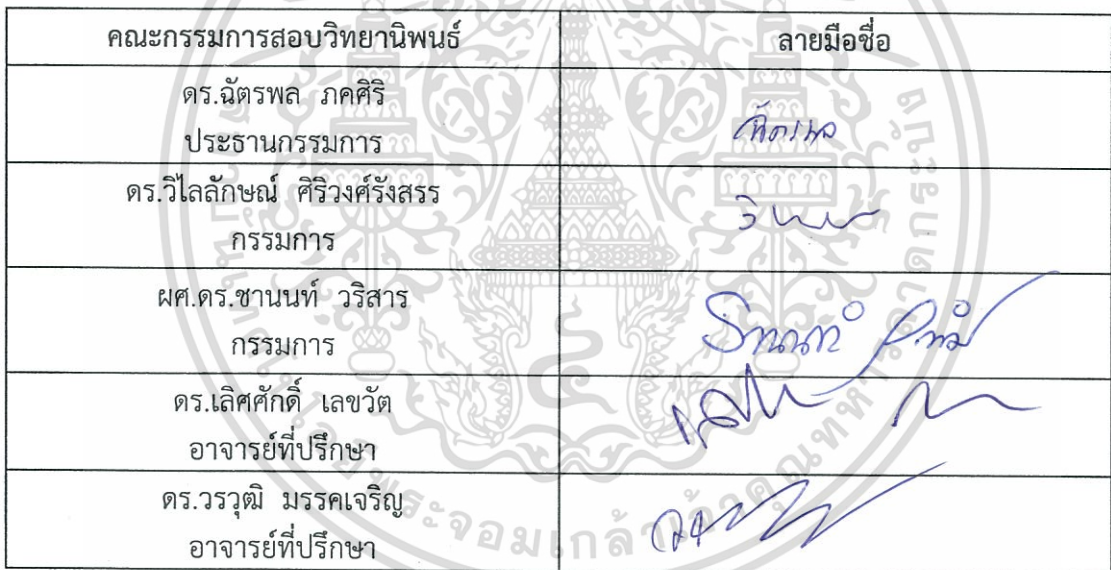 คณะกรรมการสอบวิทยานิพนธ์ ลายมือชื่อ
ดร.ฉัตรพล ภคศิริ
ประธานกรรมการ
ฉัตรพล
ดร.วิไลลักษณ์ ศิริวงศ์รังสรร
กรรมการ
ผศ.ดร.ชานนท์ วริสาร
กรรมการ
ชานนท์
ดร.เลิศศักดิ์ เลขวัต
อาจารย์ที่ปรึกษา
ดร.วรวุฒิ มรรคเจริญ
อาจารย์ที่ปรึกษา
พระจอมเกล้าเจ้าคุณทหารลาดกระบัง